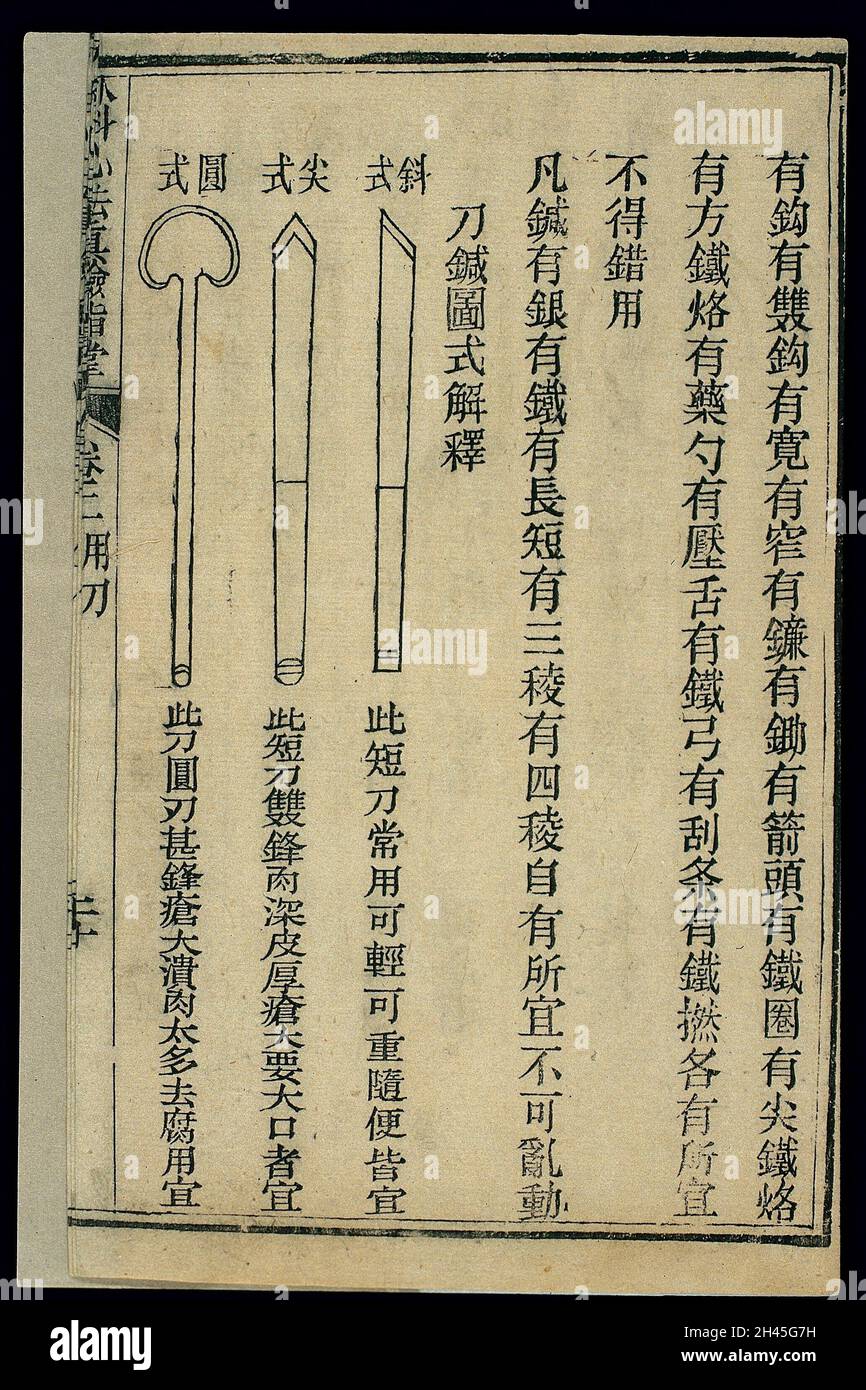 有鈎有雙鈎有寬有窄有鐮有鋤有箭頭有鐵圈有尖鐵烙
有方鐵烙有藥勺有壓舌有鐵弓有刮条有鐵撚各有所宜
不得錯用
凡鍼有銀有鐵有長短有三稜有四稜自有所宜不可亂動
刀鍼圖式解釋
斜式
此短刀常用可輕可重隨便皆宜
尖式
此短刀雙鋒肉深皮厚瘡大要大口者宜
圓式
此刀圓刃甚鋒瘡大潰肉太多去腐用宜
科心法真驗指掌
卷二
用刀
二十
alamy
Image ID: 2H45G7H
www.alamy.com